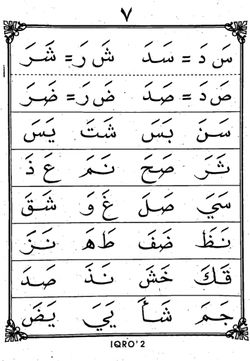 ٧
سَ دَ = سَدَ شَ رَ = شَرَ
صَ دَ = صَدَ ضَ رَ = ضَرَ
سَنَ بَسَ شَتَ يَسَ
ثَرَ صَحَ نَمَ عَ ذَ
سَيَ صَلَ غَ وَ شَقَ
نَظَ ضَفَ طَهَ نَزَ
قَكَ خَشَ نَذَ صَدَ
حَمَ شَأَ يَيَ يَضَ
IQRO' 2